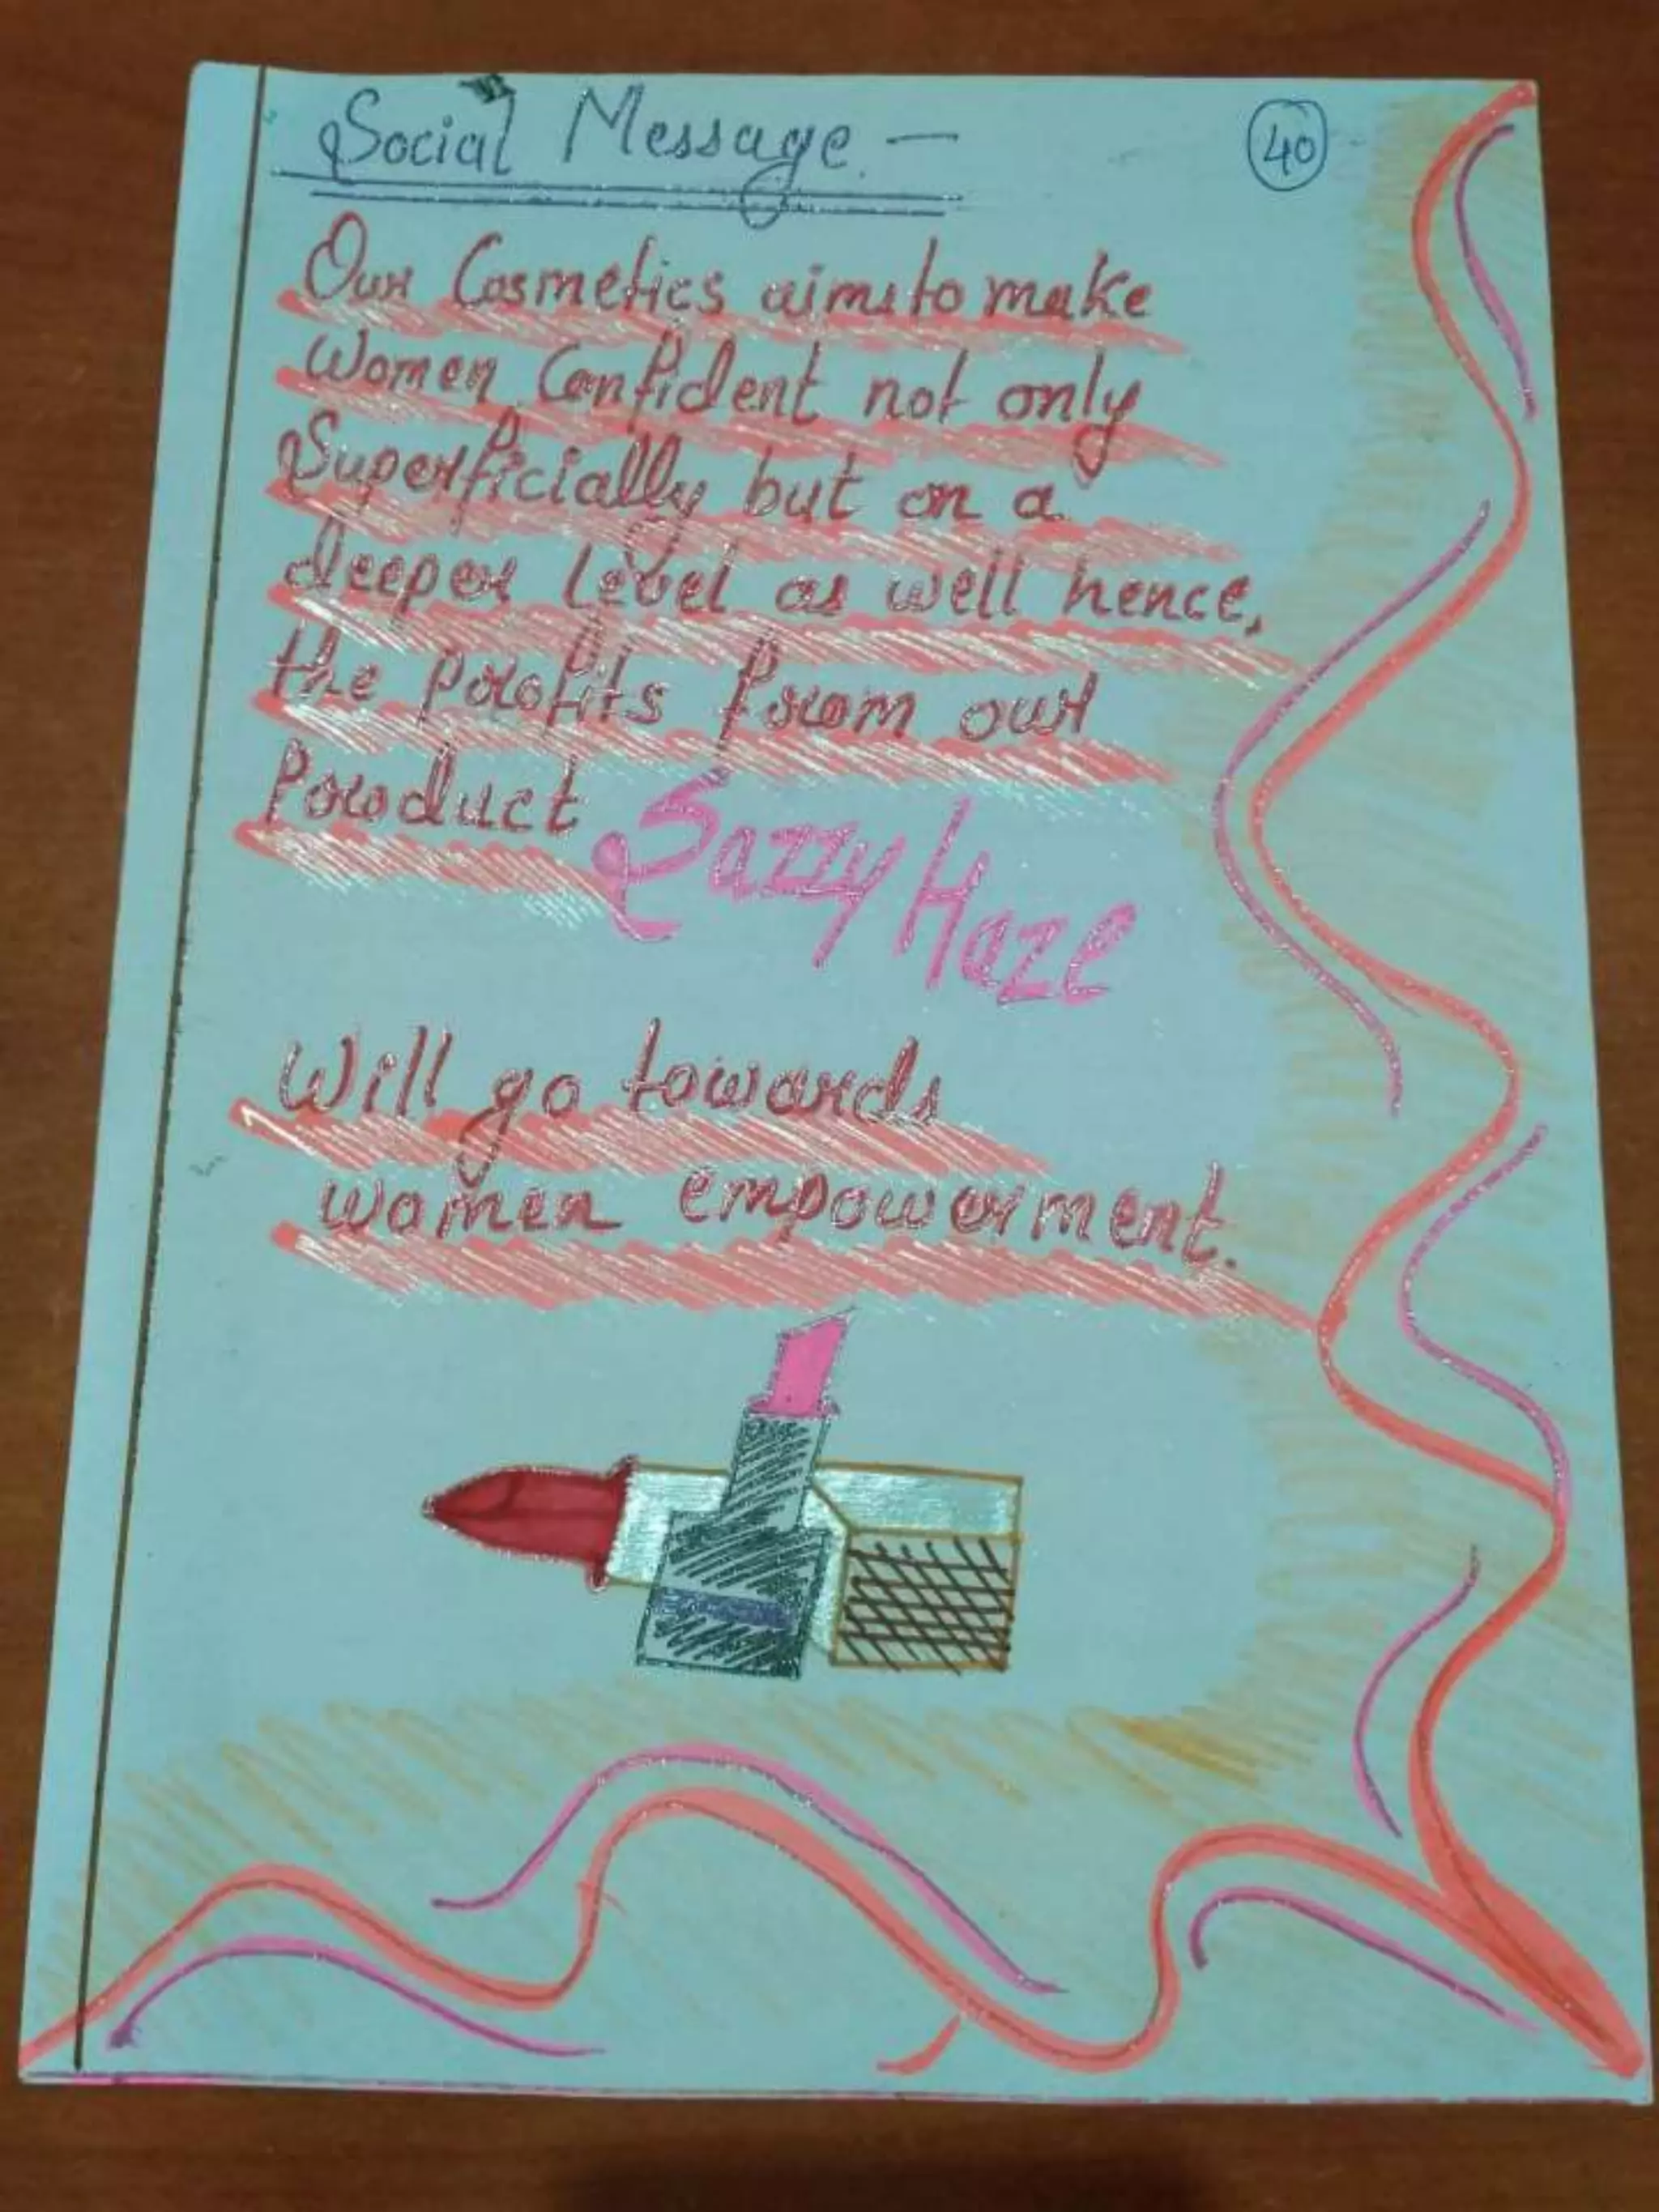 Social Message - 40
Our Cosmetics aims to make
Women Confident not only
Superficially but on a
deeper level as well hence,
the profits from our
Product Sazzy Haze
Will go towards
women empowerment.